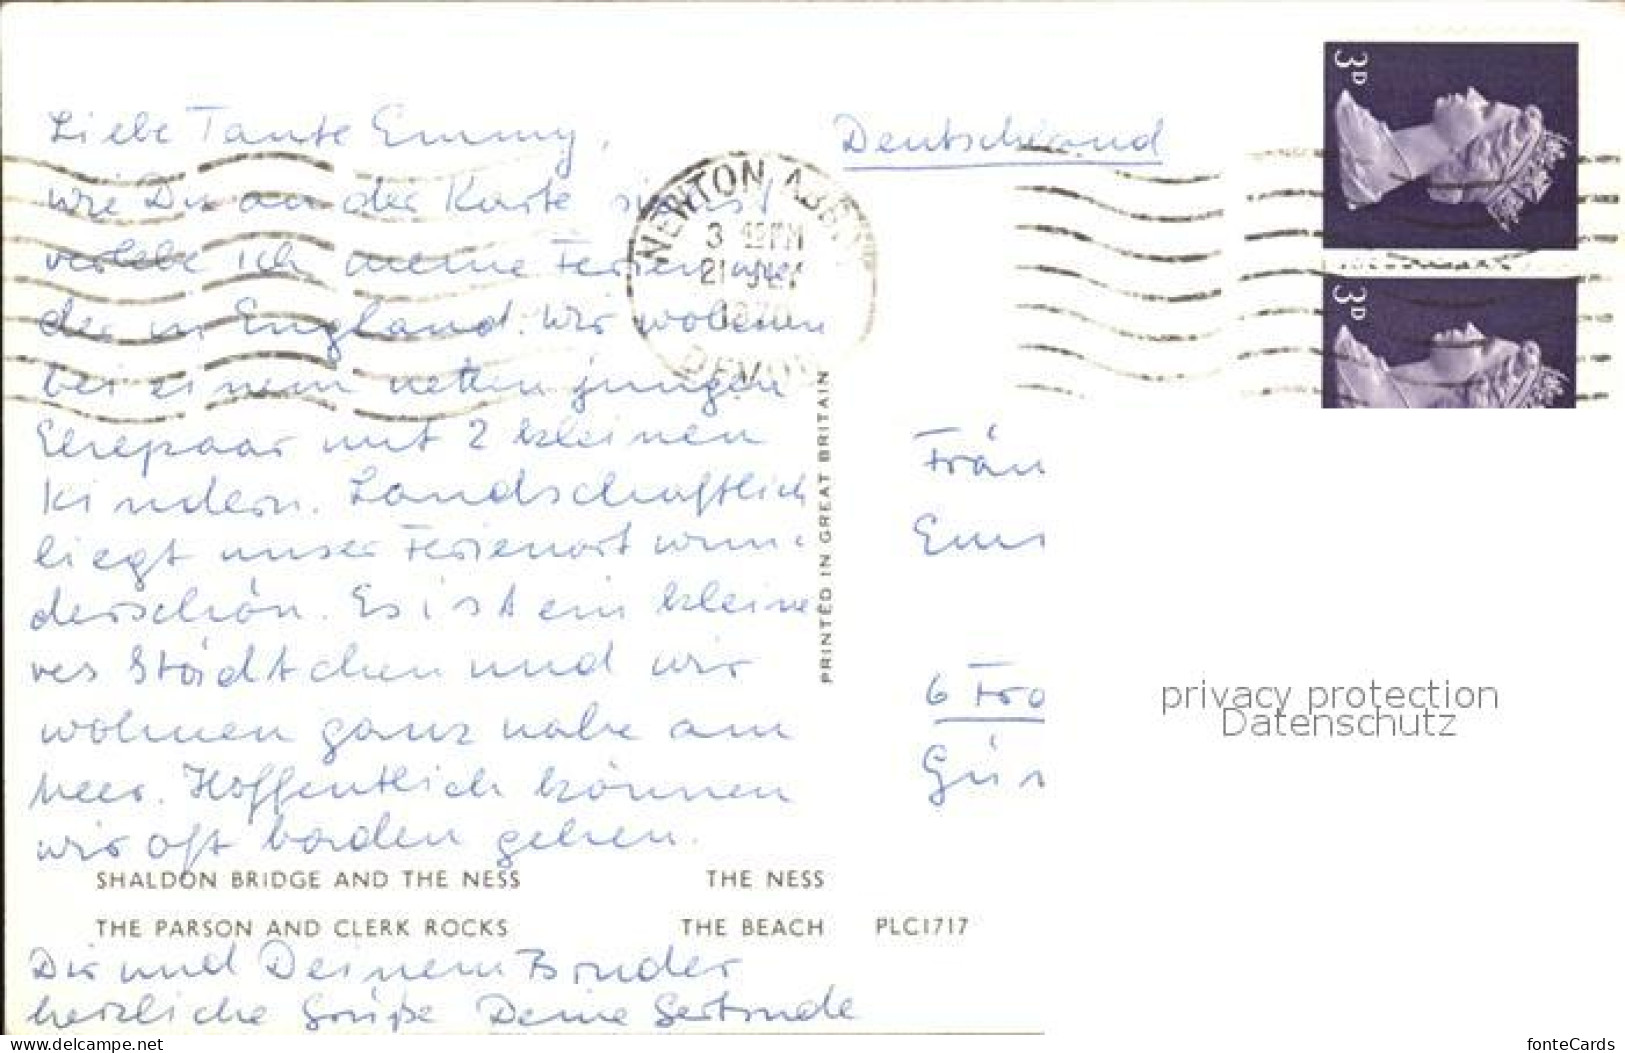 Liebe Tante Emmy,
wie Du an der Karte siehst
verlebe ich meine Ferien wie-
der in England. Wir wohnen
bei einem netten jungen
Ehepaar mit 2 kleinen
Kindern. Landschaftlich
liegt unser Ferienort wun-
derschön. Es ist ein kleine-
res Städtchen und wir
wohnen ganz nahe am
Meer. Hoffentlich können
wir oft baden gehen.
SHALDON BRIDGE AND THE NESS THE NESS
THE PARSON AND CLERK ROCKS THE BEACH PLC1717
Dir und Deinem Bruder
herzliche Grüße Deine Gertrude
PRINTED IN GREAT BRITAIN
NEWTON ABBOT
3 45 PM
21 JLY
1970
DEVON
Deutschland
3D
3D
6 Fra
privacy protection
Datenschutz
www.delcampe.net
fonteCards